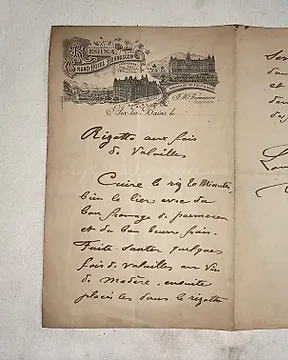 REGINA
GRAND-HÔTEL BERNASCON
Aix-les-Bains le
Rizotto aux fois
de volailles
Cuire le riz 20 Minutes,
bien le lier avec du
bon fromage de parmesan
et du bon beurre frais.
Faite sauter quelques
fois de volailles au vin
de madère, ensuite
placés les dans le rizotto
Ser
et